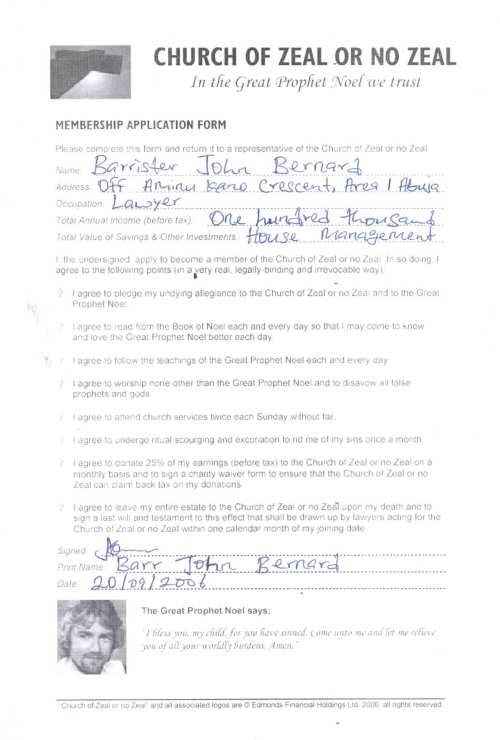 CHURCH OF ZEAL OR NO ZEAL
In the Great Prophet Noel we trust
MEMBERSHIP APPLICATION FORM
Please complete this form and return it to a representative of the Church of Zeal or no Zeal
Name: Barrister John Bernard
Address: Off Aminu Kano Crescent, Area 1 Abuja
Occupation: Lawyer
Total Annual Income (before tax): One hundred thousand
Total Value of Savings & Other Investments: House Management
I, the undersigned, apply to become a member of the Church of Zeal or no Zeal. In so doing, I
agree to the following points (in a very real, legally-binding and irrevocable way).
? I agree to pledge my undying allegiance to the Church of Zeal or no Zeal and to the Great
Prophet Noel.
? I agree to read from the Book of Noel each and every day so that I may come to know
and love the Great Prophet Noel better each day.
? I agree to follow the teachings of the Great Prophet Noel each and every day
? I agree to worship none other than the Great Prophet Noel and to disavow all false
prophets and gods.
? I agree to attend church services twice each Sunday without fail.
? I agree to undergo ritual scourging and excoriation to rid me of my sins once a month.
? I agree to donate 25% of my earnings (before tax) to the Church of Zeal or no Zeal on a
monthly basis and to sign a charity waiver form to ensure that the Church of Zeal or no
Zeal can claim back tax on my donations.
? I agree to leave my entire estate to the Church of Zeal or no Zeal upon my death and to
sign a last will and testament to this effect that shall be drawn up by lawyers acting for the
Church of Zeal or no Zeal within one calendar month of my joining date.
Signed:
Print Name: Barr John Bernard
Date: 20/09/2006
The Great Prophet Noel says:
"I bless you, my child, for you have sinned. Come unto me and let me relieve
you of all your worldly burdens. Amen."
"Church of Zeal or no Zeal" and all associated logos are © Edmonds Financial Holdings Ltd. 2006, all rights reserved